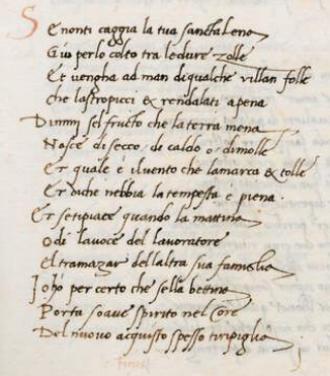 Se nonti caggia la tua sanctalena
Giu perlo colto tra ledure zolle
Et vengha ad man di qualche villan folle
che lastropicci & rendalati apena
Dimmi sel fructo che la terra mena
Nasce di secco. di caldo o. dimolle
Et quale è iluento che lamarca & tolle
Et diche nebbia la tempesta è piena.
Et setipiace quando la mattina
odi lauoce del lauoratore
El tramazar dellaltra sua famiglia
Io ho per certo che sella bettina
Porta soaue spirito nel core
Del nuouo acquisto spesso tiripiglia